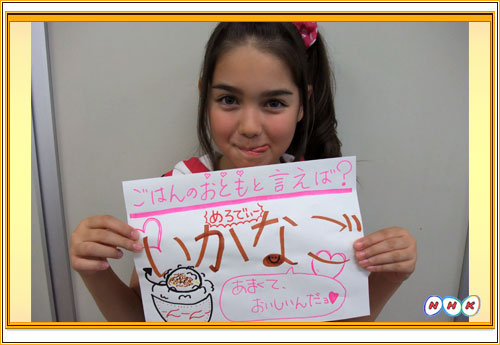 ごはんのおともと言えば?
めろでぃー
いかなご
あまくて、
おいしいんだョ
NHK